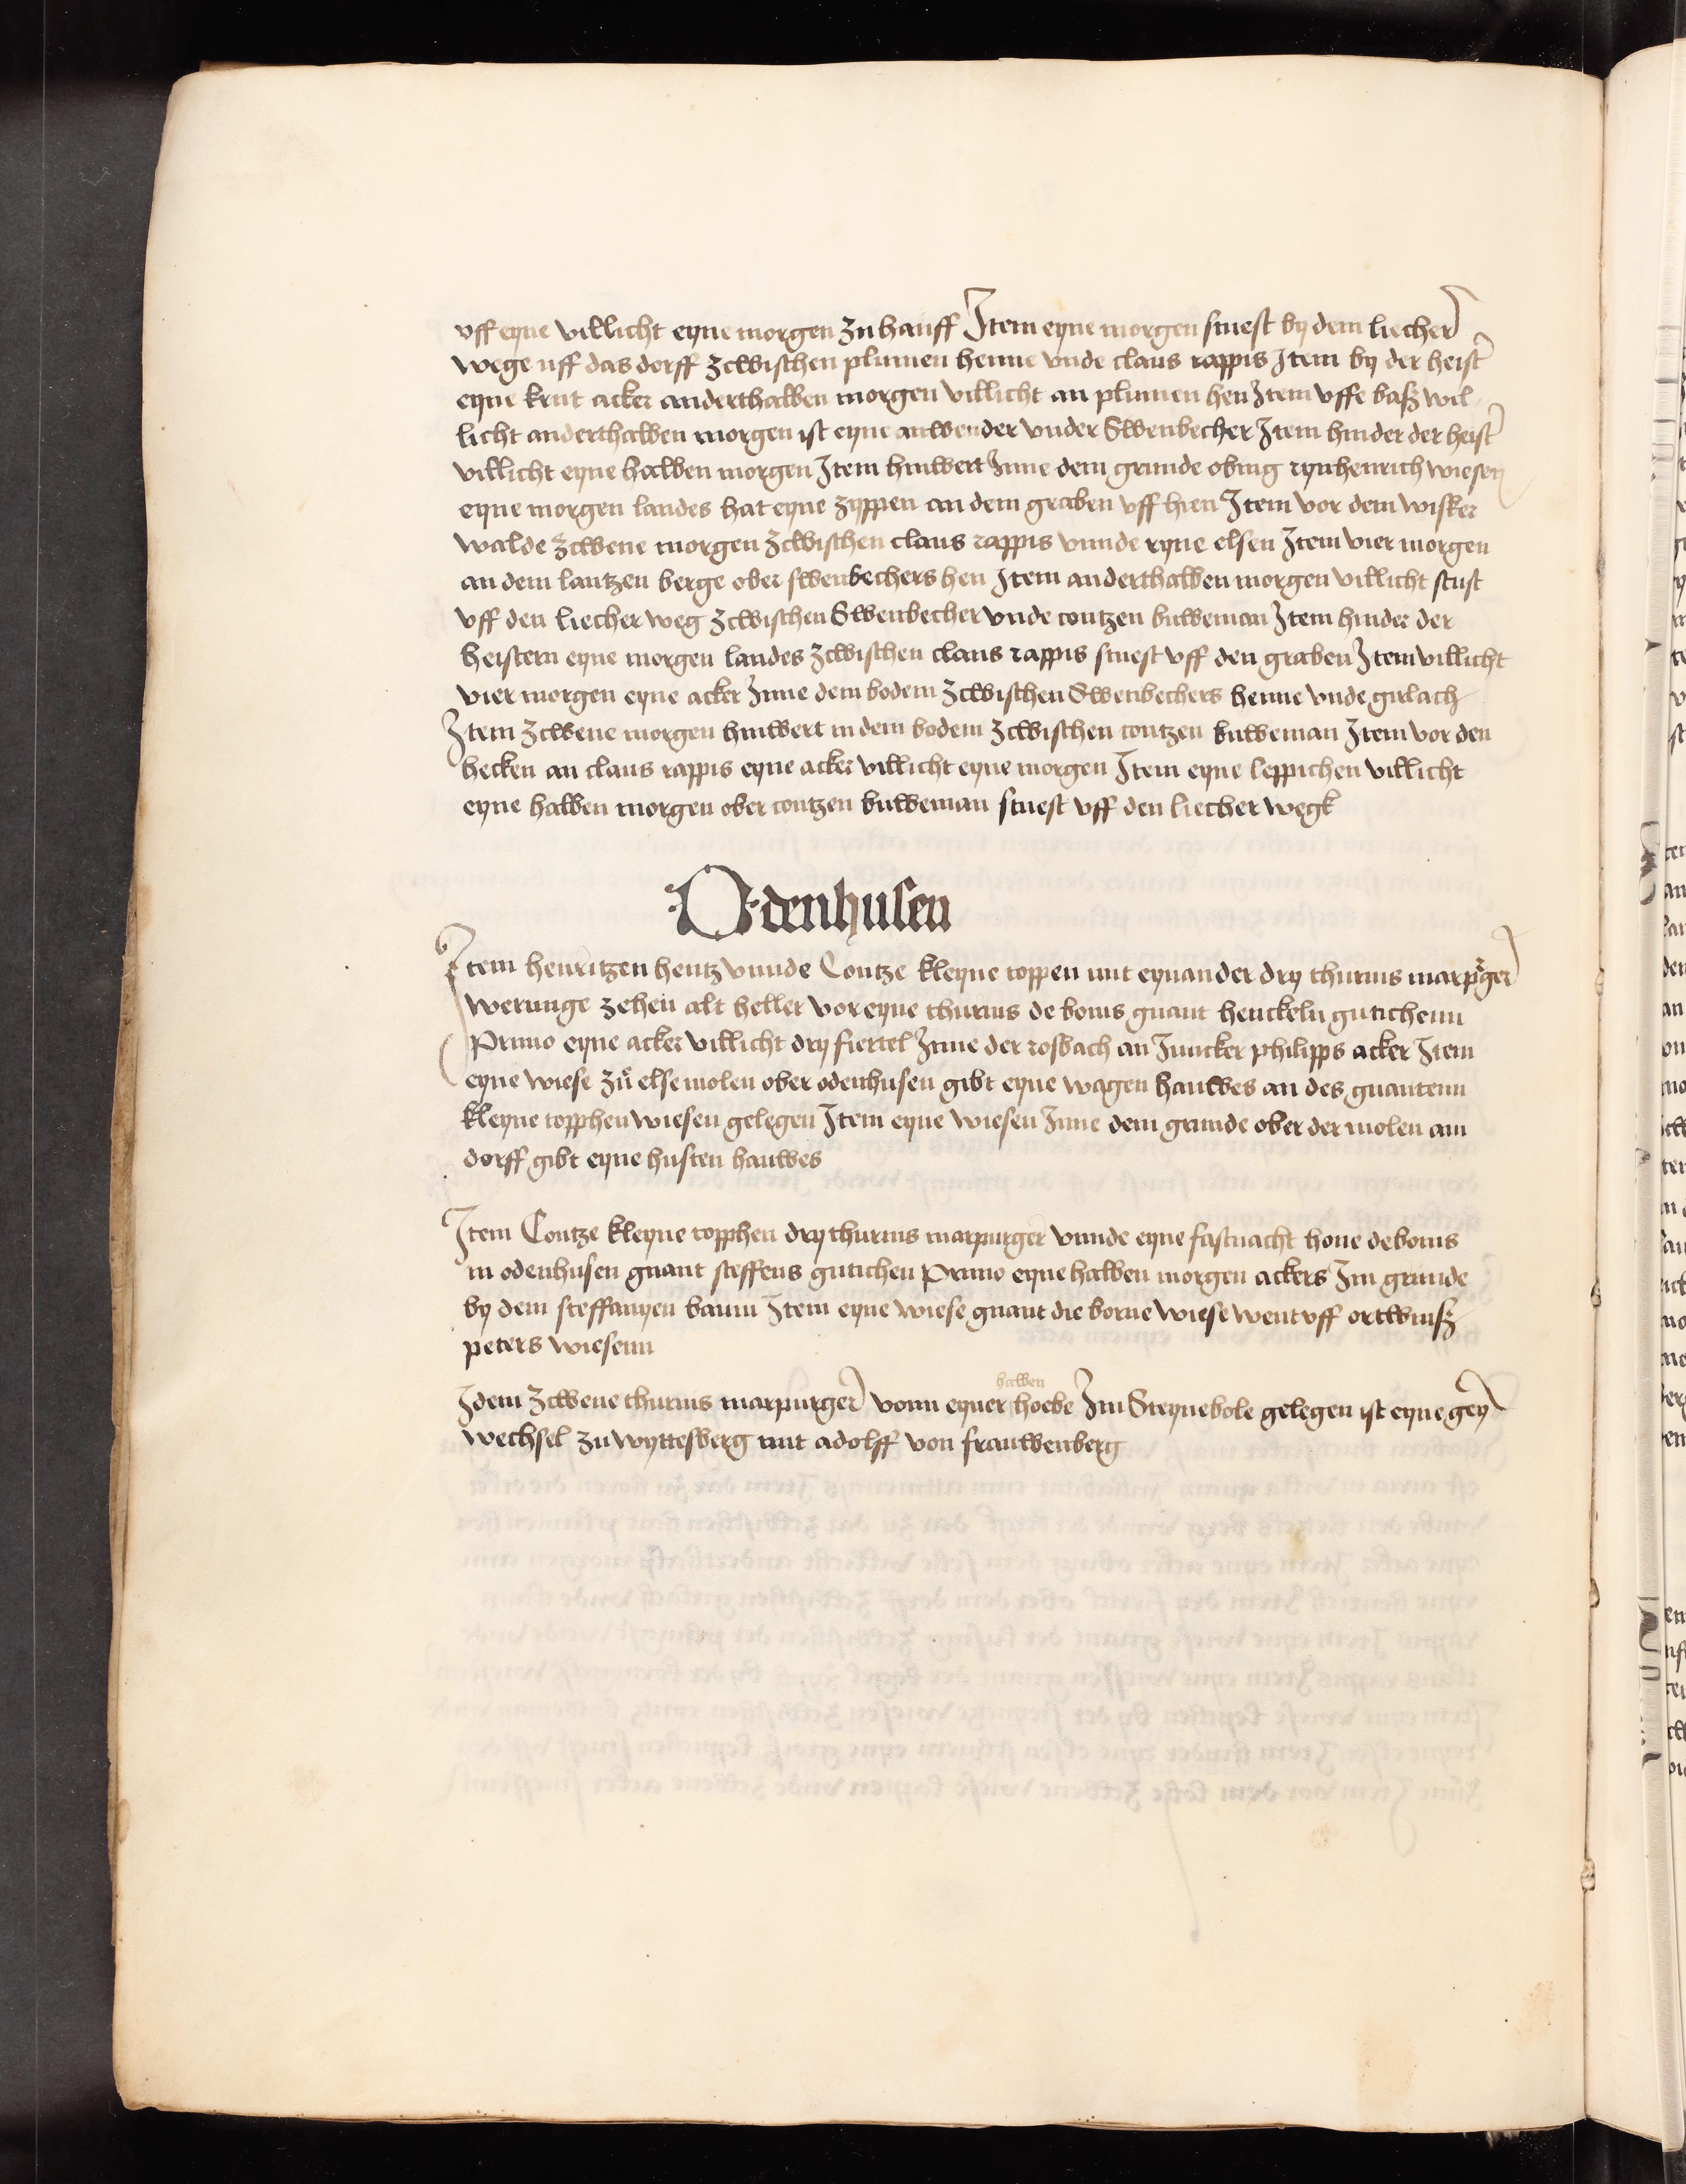 vff eyne villicht eyne morgen zu hauff Item eyne morgen smest by dem liecher
wege uff das dorff zcwischen plumen henne vnde claus rappis Item by der heist
eyne krut acker anderthalben morgen villicht an plumen hen Item vffe basz wil
licht anderthalben morgen ist eyne anwender vnder Swenbecher Item hinder der heist
villicht eyne halben morgen Item hinwert Inne dem grunde obing rynhenrich wiesen
eyne morgen landes hat eyne zyppen an dem graben vff hien Item vor dem wisker
walde zcwene morgen zcwischen claus rappis vnnde ryne elsen Item vier morgen
an dem lantzen berge ober swenbechers hen Item anderthalben morgen villicht stust
vff den liecher weg zcwischen Swenbecher vnde contzen buweman Item hinder der
heistern eyne morgen landes zcwischen claus rappis smest vff den graben Item villicht
vier morgen eyne acker Inne dem bodem zcwischen Swenbechers henne vnde gulach
Item zcwene morgen hinwert in dem bodem zcwischen contzen buweman Item vor den
hecken an claus rappis eyne acker villicht eyne morgen Item eyne leppichen villicht
eyne halben morgen ober contzen buweman smest vff den liecher wegk
Odenhusen
Item henritzen hentz vnnde Contze kleyne toppen mit eynander dry thurnis marpger
werunge zehen alt heller vor eyne thurnis de bonis gnant henckeln gutichenn
Primo eyne acker villicht dry fiertel Inne der rosbach an Juncker philipps acker Item
eyne wiese zu elsemolen ober odenhusen gibt eyne wagen hauwes an des gnantenn
kleyne topphen wiesen gelegen Item eyne wiesen Inne dem grunde ober der molen am
dorff gibt eyne husten hauwes
Item Contze kleyne topphen dry thurnis marpurger vnnde eyne fastnacht hone de bonis
in odenhusen gnant steffens gutichen Primo eyne halben morgen ackers Im grunde
by dem steffanyen baum Item eyne wiese gnant die borne wiese went vff ortwinsz
peters wiesenn
halben
Idem zcwene thurnis marpurger vonn eyner hoebe Im Steynebole gelegen ist eyne gey
wechsel zu wyttesberg mit adolff von frauwenberg